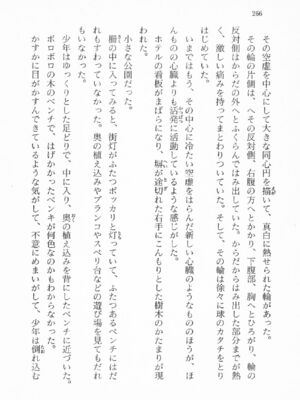 266
その空虚を中心にして大きな同心円を描いて、真白に熱せられた輪があった。
その輪の片側は、へその反対側、右腹の方へとかかり、下腹部、胸へとひろがり、輪の
反対側はからだの外へとふくらんではみ出していた。からだからはみ出した部分までが熱
く、激しい痛みを持ってまとわりついていた。そして、その輪は徐々に球のカタチをとり
はじめていた。
いまではもう、その中心に冷たい空虚をはらんだ新しい心臓のようなもののほうが、ほ
んものの心臓よりも活発に活動しているような感じがした。
ホテルの看板がまばらになり、塀が途切れた右手にこんもりとした樹木のかたまりが現
われた。
小さな公園だった。
柵の中に入ってみると、街灯がふたつポッカリと灯っていて、ふたつあるベンチにはだ
れもすわっていなかった。奥の植え込みやブランコやスベリ台などの遊び場を見てもだれ
もいなかった。
少年はゆっくりとした足どりで、中に入り、奥の植え込みを背にしたベンチに近づいた。
ボロボロの木のベンチで、はげかかったペンキが何色なのかもわからなかった。
かすかに目がかすんできているような気がして、不意にめまいがし、少年は倒れ込む